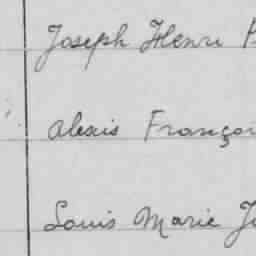 Joseph Henri
Alexis Françoi
Louis Marie